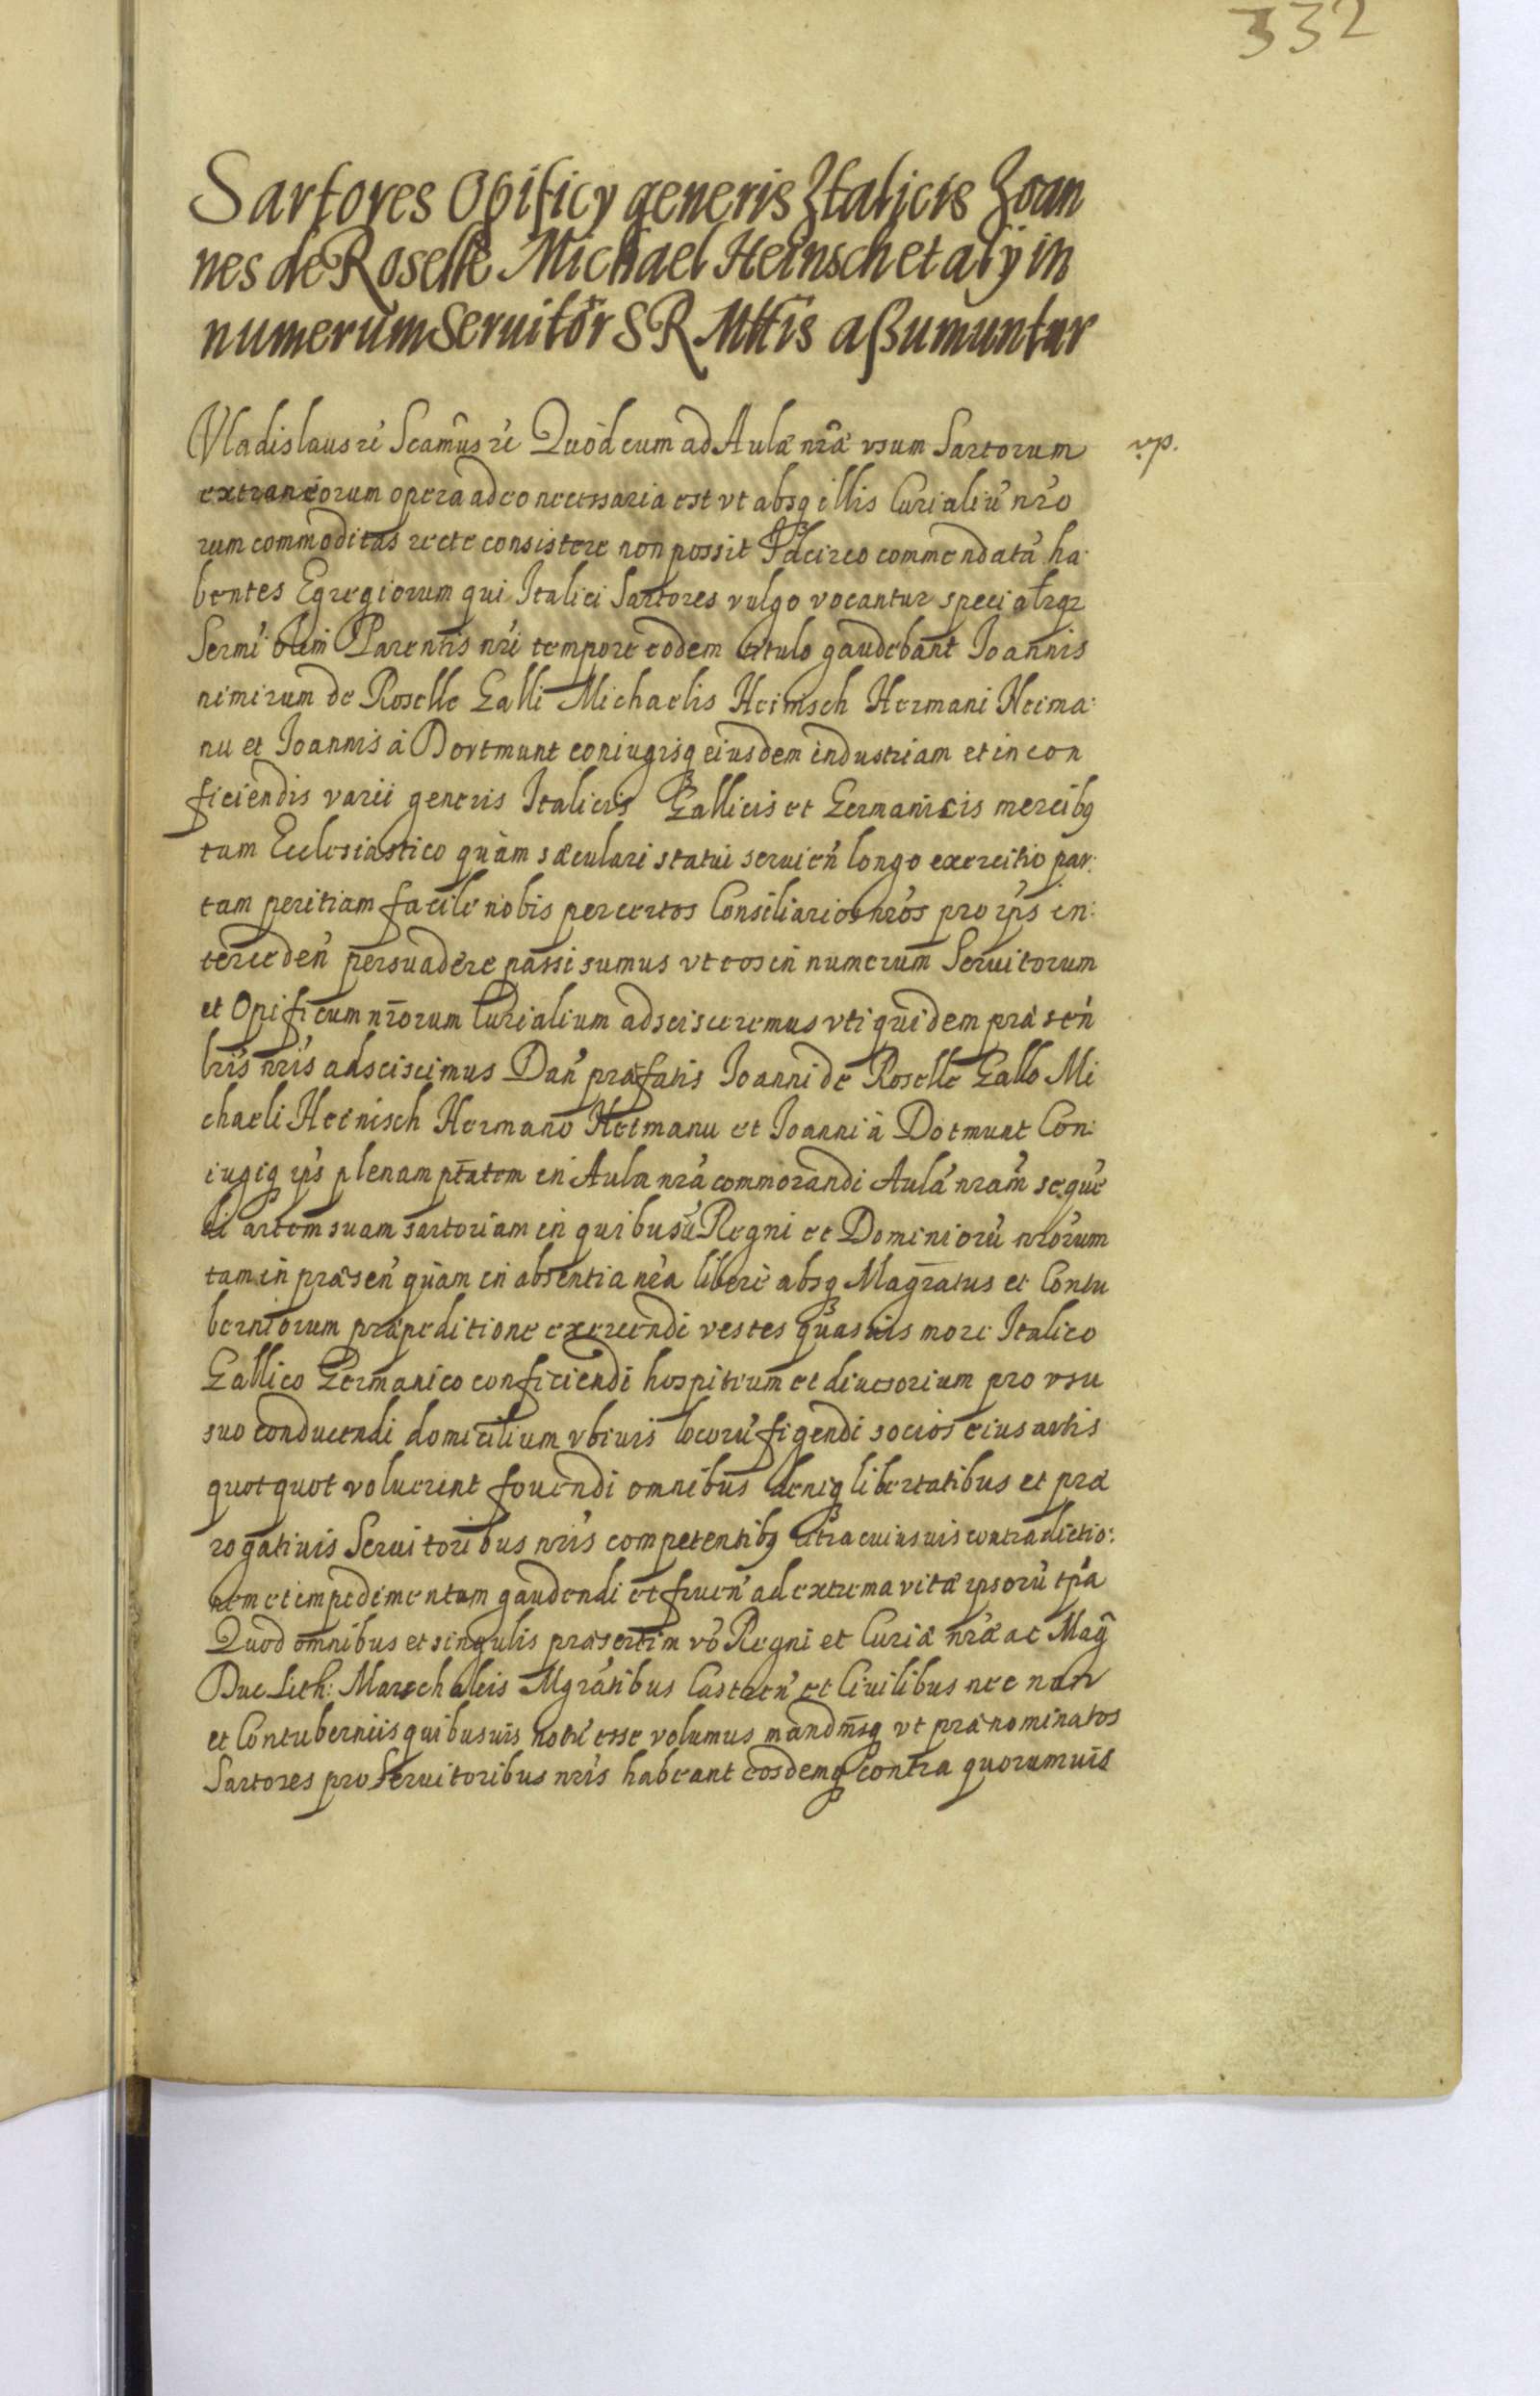 332
Sartores Opificy generis Italicis Ioan
nes de Roselle Michael Heinsch et alÿ in
numerum Seruitor̃ S R Mttis aßumuntur
Vladislaus rė Scam̃us rė Quòd cum ad Aulæ nr̃æ vsum Sartorum
vp.
extraneorum opera adeo necessaria est vt absq illis Curialiu' nr'o
rum commoditas recte consistere non possit Idcirco commendatã ha:
bentes Egregiorum qui Italici Sartores vulgo vocantur
Sermi' olim Parentis nr'i tempore eodem titulo gaudebant Ioannis
nimirum de Roselle Galli Michaelis Heinisch Hermani Heima:
nu et Ioannis à Dortmunt coniugisq eiusdem industriam et in con
ficiendis varii generis Italicis Gallicis et Germanicis mercibq
tum Ecclesiastico quàm sæculari statui seruien' longo exercitio par:
tam peritiam facile nobis per certos Consiliarios nr'os pro ip's in:
terceden' persuadere passi sumus vt eos in numerum Seruitorum
et Opificum nr̃orum Curialium adscisceremus vti quidem præsen'
bris nr'is adsciscimus Dan' præfatis Ioanni de Roselle Gallo Mi
chaeli Heinisch Hermano Heimanu et Ioanni à Dotmunt Con:
iugiq ip's plenam ptatem in Aula nr'a commorandi Aula' nram̃ seque'
di artem suam sartoriam in quibusu' Regni et Dominioru' nr'orum
tam in præsen' quam in absentia nr'a liberè absq Magr̃atus et Contu
berniorum præpeditione exercendi vestes quasuis more Italico
Gallico Germanico conficiendi hospitium et diuersorium pro vsu
suo conducendi domicilium vbiuis locoru' figendi socios eius artis
quotquot voluerint fouendi omnibus deniq libertatibus et præ
rogatiuis Seruitoribus nr'is competentibq citra cuiusuis contradictio:
nem et impedimentum gaudendi et fruen' ad extrema vitæ ipsoru' tp'a
Quod omnibus et singulis præsertim vo' Regni et Curiæ nr'æ ac Mag̃
Duc Lith: Marschalcis Mgra'tibus Castren' et Ciuilibus nec non
et Contuberniis quibusuis notu' esse volumus mandm̃sq vt prænominatos
Sartores pro Seruitoribus nr'is habeant eosdemq contra quorumuis